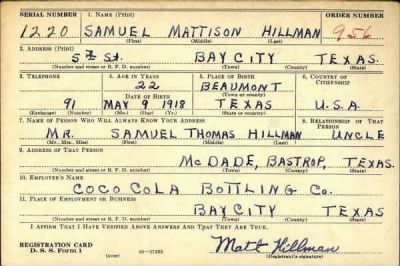 SERIAL NUMBER 1. NAME (Print) ORDER NUMBER
1220 SAMUEL MATTISON HILLMAN 956
(First) (Middle) (Last)
2. ADDRESS (Print)
5TH ST. BAY CITY TEXAS.
(Number and street or R. F. D. number) (Town) (County) (State)
3. TELEPHONE 4. AGE IN YEARS 5. PLACE OF BIRTH 6. COUNTRY OF CITIZENSHIP
22 BEAUMONT
DATE OF BIRTH (Town or county)
91 MAY 9 1918 TEXAS U.S.A.
(Exchange) (Number) (Mo.) (Day) (Yr.) (State or country)
7. NAME OF PERSON WHO WILL ALWAYS KNOW YOUR ADDRESS 8. RELATIONSHIP OF THAT PERSON
MR. SAMUEL THOMAS HILLMAN UNCLE
(Mr., Mrs., Miss) (First) (Middle) (Last)
9. ADDRESS OF THAT PERSON
MCDADE, BASTROP, TEXAS.
(Number and street or R. F. D. number) (Town) (County) (State)
10. EMPLOYER'S NAME
COCO COLA BOTTLING CO.
11. PLACE OF EMPLOYMENT OR BUSINESS
BAY CITY TEXAS
(Number and street or R. F. D. number) (Town) (County) (State)
I AFFIRM THAT I HAVE VERIFIED ABOVE ANSWERS AND THAT THEY ARE TRUE.
REGISTRATION CARD
D. S. S. Form 1 (over) Matt Hillman
(Registrant's signature)